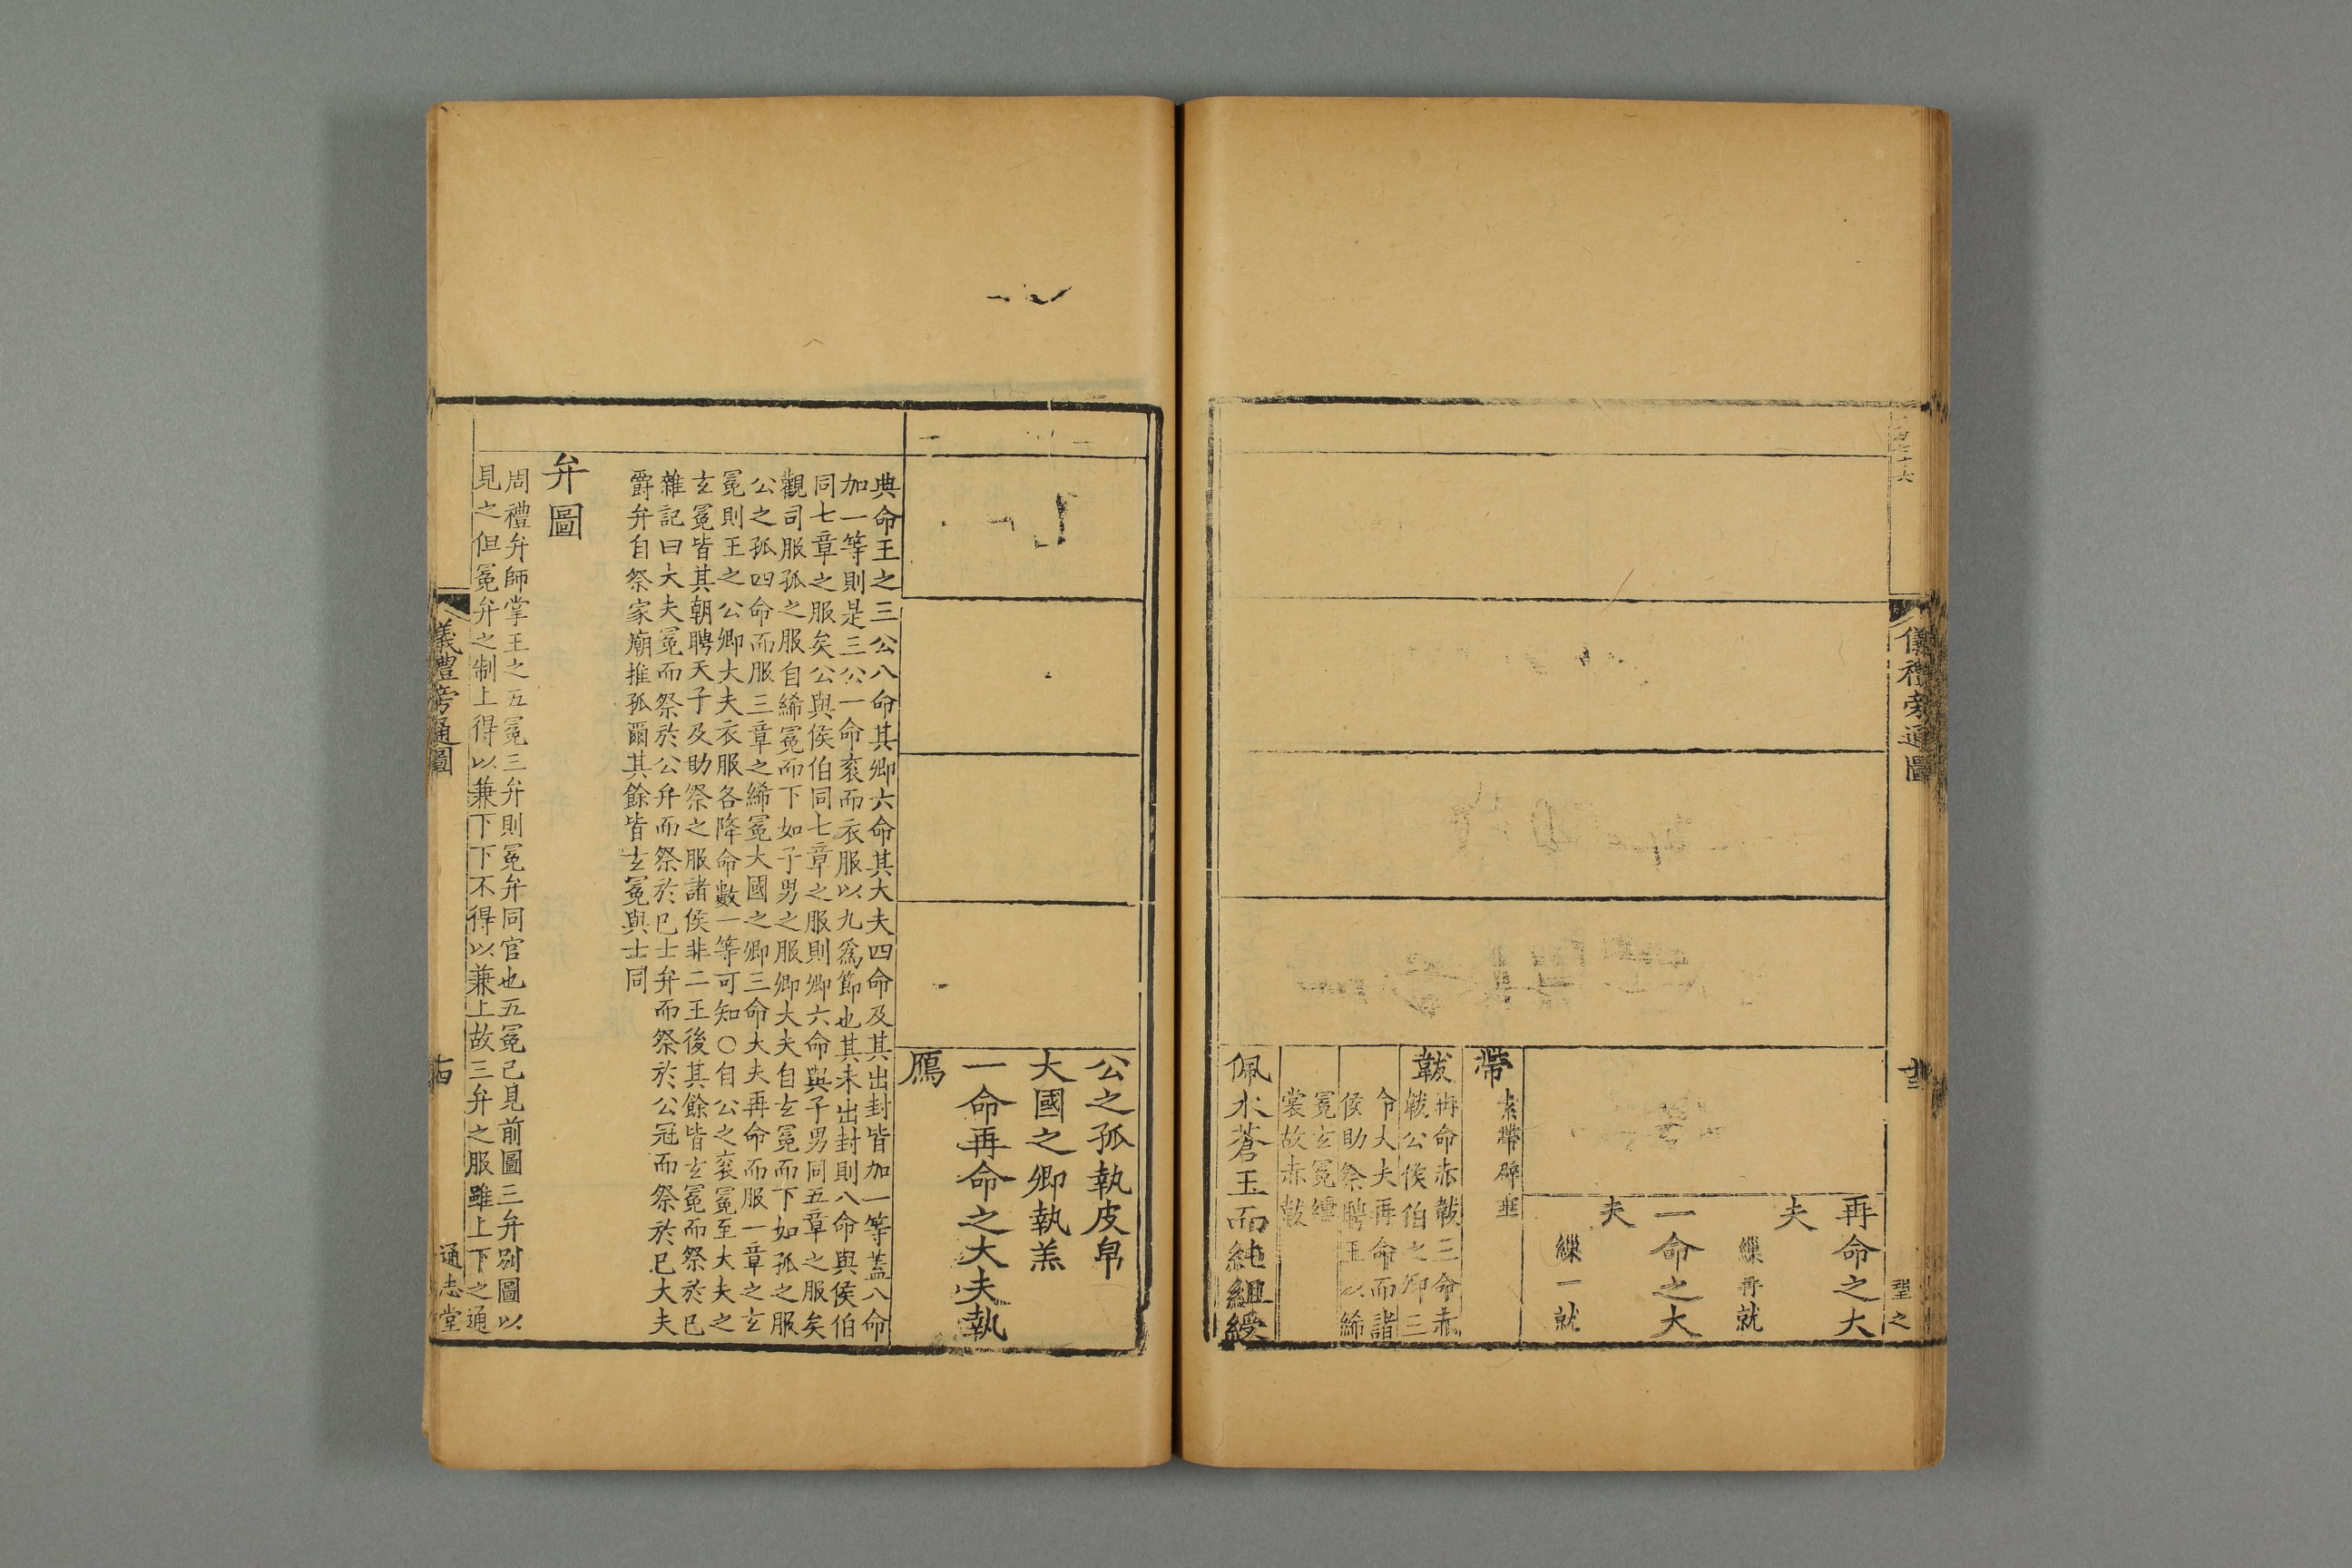 儀禮旁通圖
再命之大
夫
繅再就
一命之大
夫
繅一就
帶
素帶辟垂
韍
再命赤韍三命赤
韍公侯伯之卿三
命大夫再命而諸
侯助祭聘王以絺
冕玄冕纁
裳故赤韍
佩水蒼玉而純緼綬
公之孤執皮帛
大國之卿執羔
一命再命之大夫執
鴈
典命王之三公八命其卿六命其大夫四命及其出封皆加一等蓋八命
加一等則是三公一命袞而衣服以九爲節也其未出封則八命與侯伯
同七章之服矣公與侯伯同七章之服則卿六命與子男同五章之服矣
觀司服孤之服自絺冕而下如子男之服卿大夫自玄冕而下如孤之服
公之孤四命而服三章之絺冕大國之卿三命大夫再命而服一章之玄
冕則王之公卿大夫衣服各降命數一等可知○自公之袞冕至大夫之
玄冕皆其朝聘天子及助祭之服諸侯非二王後其餘皆玄冕而祭於已
雜記曰大夫冕而祭於公弁而祭於已士弁而祭於公冠而祭於已大夫
爵弁自祭家廟推孤爾其餘皆玄冕與士同
弁圖
周禮弁師掌王之五冕三弁則冕弁同官也五冕已見前圖三弁別圖以
見之但冕弁之制上得以兼下下不得以兼上故三弁之服雖上下之通
儀禮旁通圖
十四
通志堂